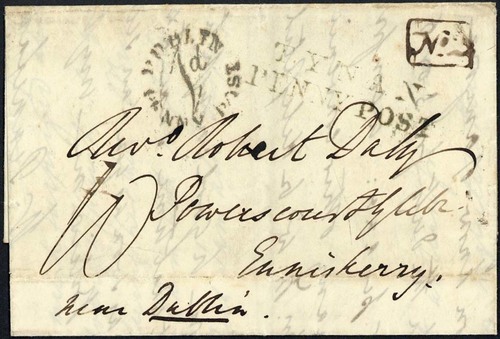 DUBLIN PENNY POST
TYNA
PENNY POST
No. 2
Revd. Robert Daly
Powerscourt Glebe
Enniskerry.
near Dublin.